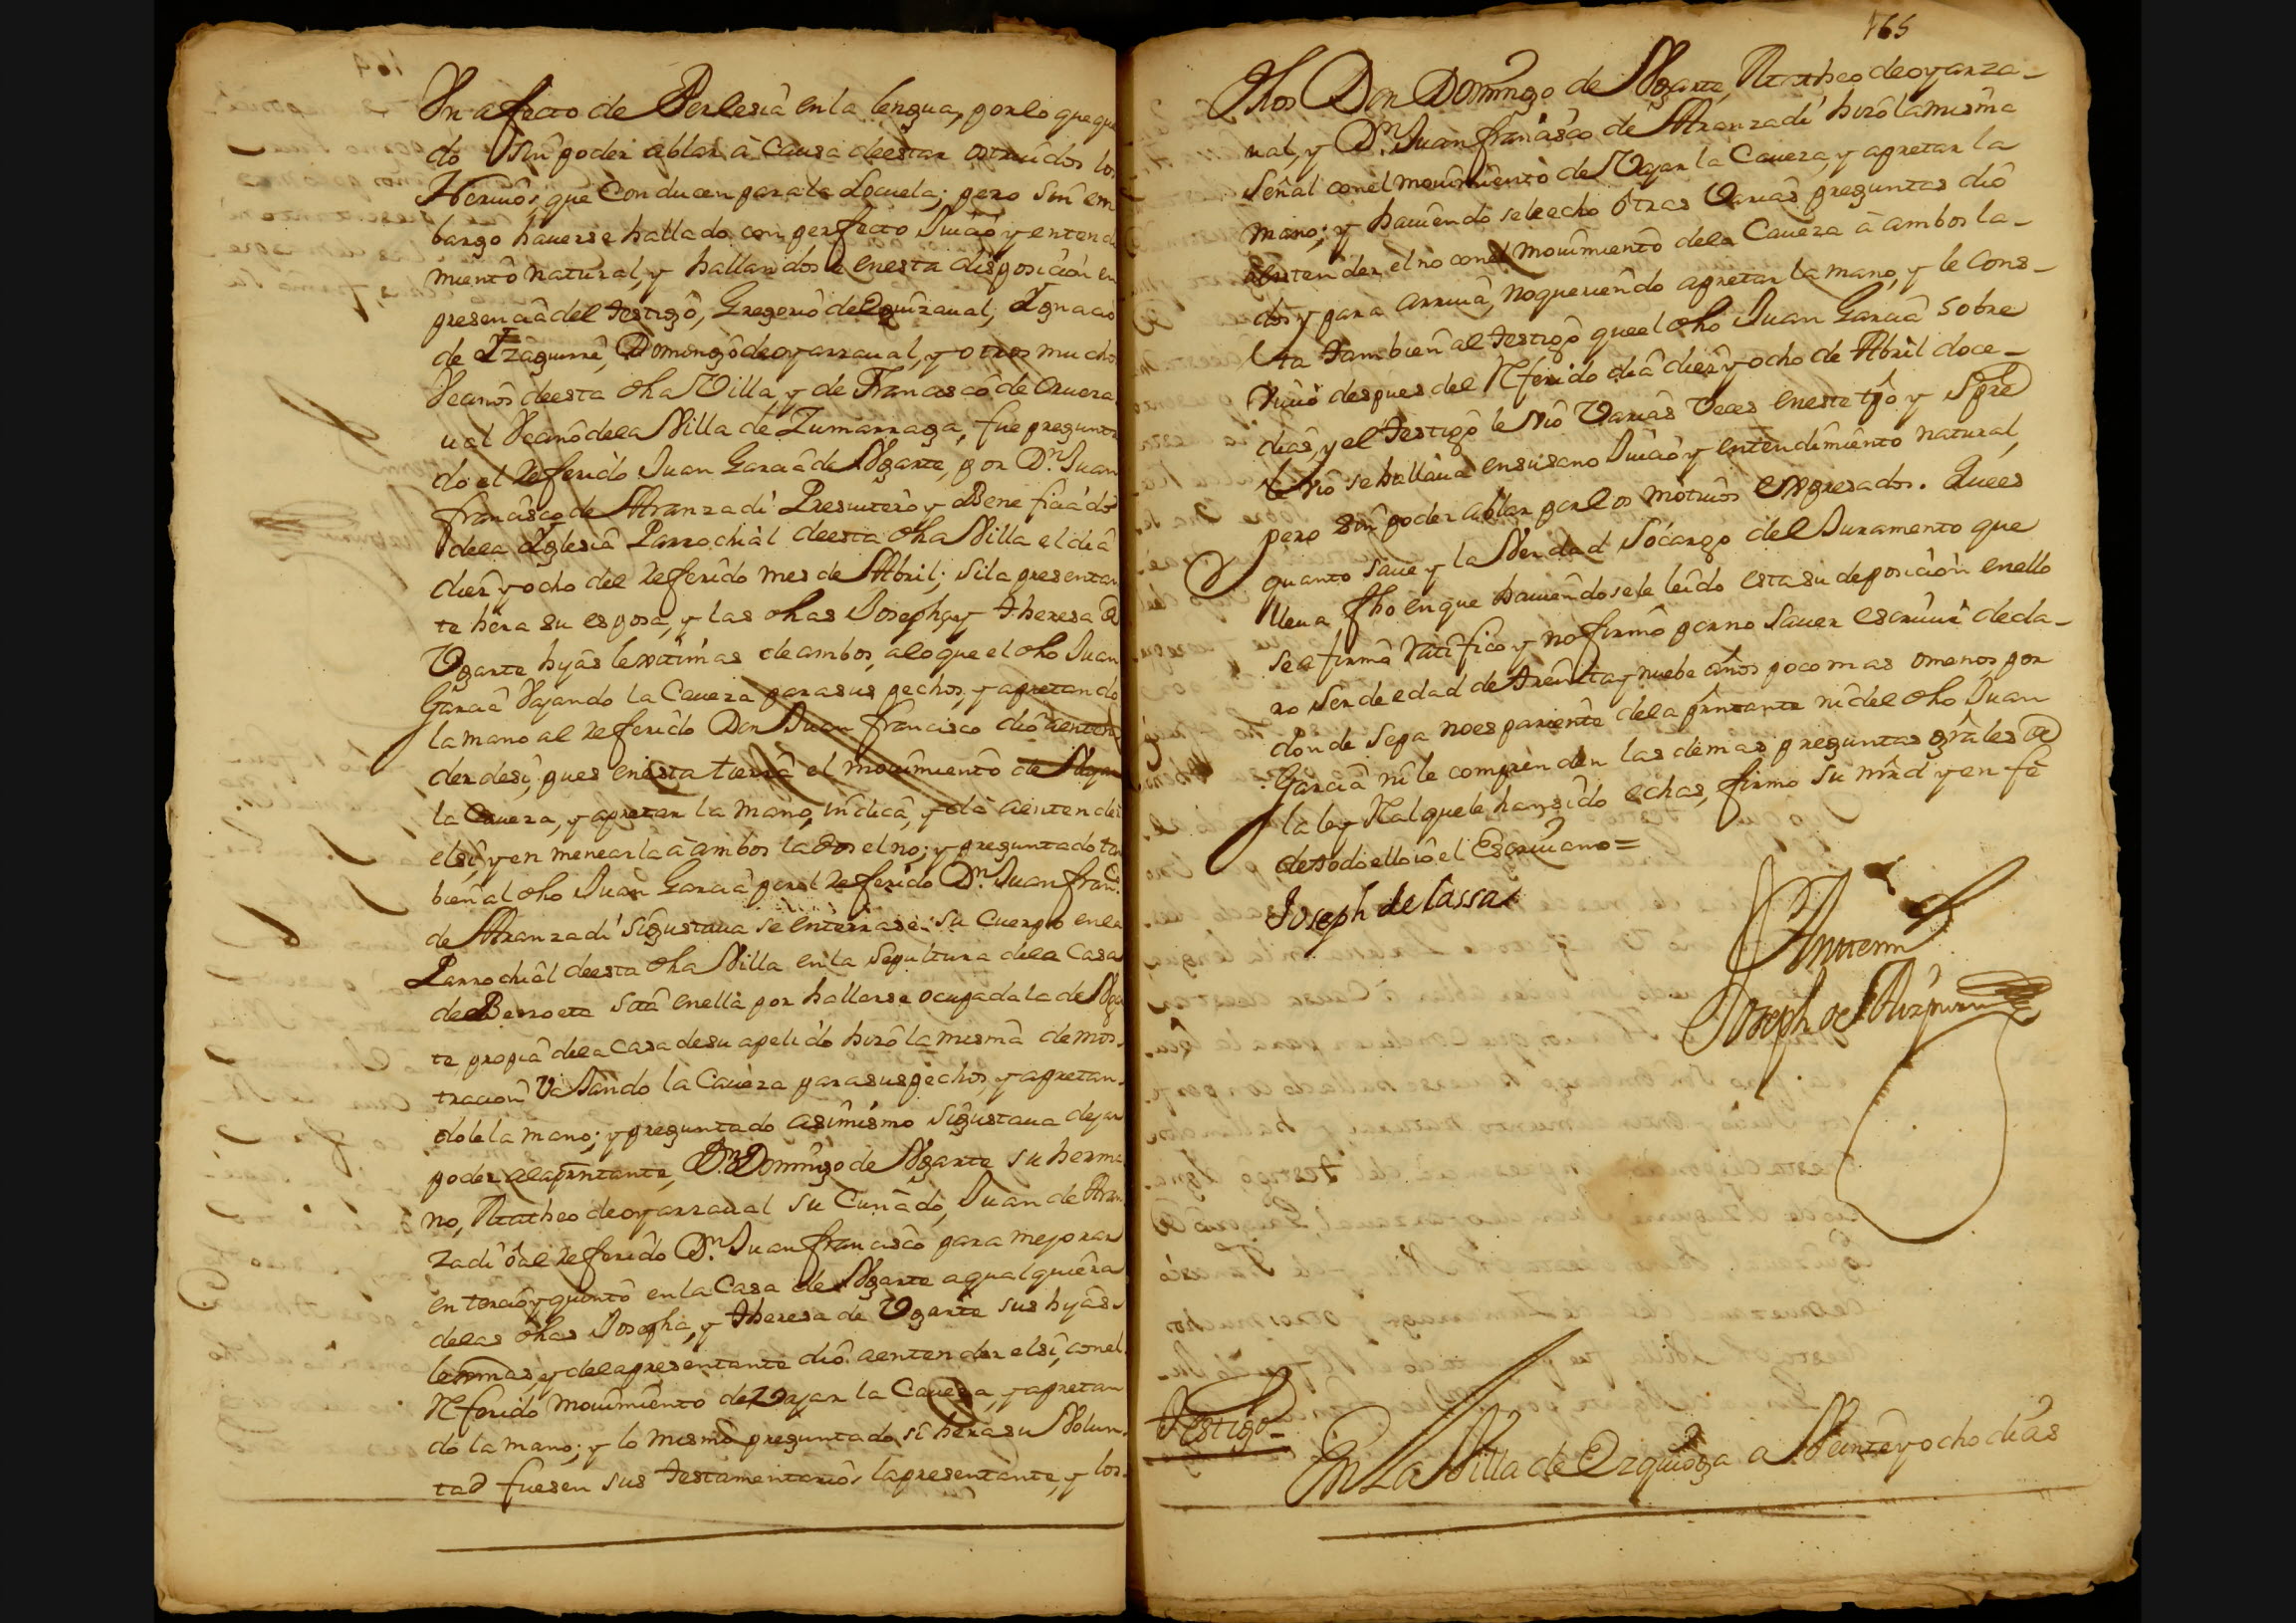 Un afecto de Perlesia en la lengua, por lo que que
do sin poder ablar à Causa de estar ostruidos los
Nervios, que Conducen para la Locuela; pero sin em
bargo haverse hallado con perfecto Juicio y entendi
miento natural, y hallandose en esta disposicion en
presencia del testigo, Gregorio de Eguizaual, Ignacio
de Izaguirre, Domingo de oyarzaual, y otros muchos
Vecinos de esta dha Villa, y de Francisco de
ual Vecino de la Villa de Zumarraga, fue pregunta
do el referido Juan Garcia de Ugarte, por Dn. Juan
francisco de Aranzadi Presuitero y Beneficiado
de la Iglesia Parrochial de esta dha Villa el dia
diez y ocho del referido mes de Abril; si la presentan
te hera su esposa, y las dhas Josepha, y theresa de
Ugarte hijas lexitimas de ambos, alo que el dho Juan
Garcia Vajando la Caueza para sus pechos, y apretando
la mano al referido Don Juan francisco dió à enten
der de si, pues en esta tierra el mouimiento de Vajar
la Caueza, y apretar la mano, indica, y dà à entender
el si, y en menearla à ambos lados el no; y preguntado tam
bien al dho Juan Garcia por el referido Dn. Juan franco.
de Aranzadi si gustaua se enterrase su Cuerpo en la
Parrochial de esta dha Villa en la Sepultura de la Casa
de Berroeta sita en ella por hallarse ocupada la de Ugar
te, propia de la Casa de su apelido hizo la misma demos-
tracion Vajando la Caueza para sus pechos, y apretan-
dole la mano; y preguntado asimismo si gustaua dejar
poder ala presentante, Dn. Domingo de Ugarte su herma
no, Matheo de oyarzaual su Cuñado, Juan de Aran
zadi ò al referido Dn. Juan francisco para mejorar
en tercio y quinto en la Casa de Ugarte a qualquiera
de las dhas Josepha, y theresa de Ugarte sus hijas
lexitimas, y de la presentante dió à entender el si, con el
Referido mouimiento de Vajar la Caueza, y apretan
do la mano; y lo mismo preguntado, si hera su Volun-
tad fuesen sus testamentarios la presentante, y los
165
dhos Don Domingo de Ugarte, Matheo de oyarza-
ual, y Dn. Juan francisco de Aranzadi hizo la misma
Señal con el mouimiento de Vajar la Caueza, y apretar la
mano; y hauiendosele echo otras Varias preguntas dió
à entender el no con el mouimiento de la Caueza à ambos la-
dos y para arriua, no queriendo apretar la mano, y le Cons-
ta tambien al testigo que el dho Juan Garcia sobre
viuio despues del Referido dia diez y ocho de Abril doce
dias, y el testigo le vió Varias Veces en este tpo y Spre
le vió se hallaua en su sano Juicio y entendimiento natural,
pero sin poder ablar por los motiuos expresados. Que es
quanto saue y la Verdad Socargo del Juramento que
lleua fho en que hauiendosele leido esta su deposicion en ello
se afirmó Ratificó y no firmó por no sauer escriuir decla-
ro Ser de edad de treinta y nuebe años poco mas omenos, por
donde sepa no es pariente de la presentante ni del dho Juan
Garcia ni le comprenden las demas preguntas grales de
la ley Real que le han sido echas, firmó su mrd y en fe
de todo ello io el Escriuano =
Joseph de Lassa
Ante mi
Joseph de Aizpuru
Testigo =
En La Villa de Ezquioga a Veinte y ocho dias